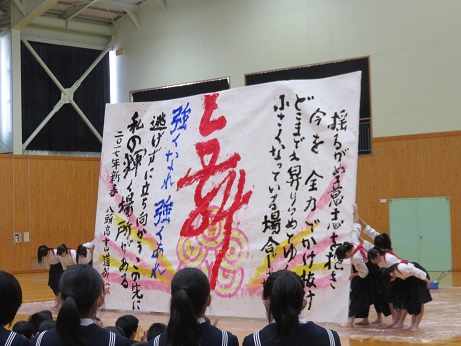 揺るがぬ意志を抱き
今を 全力でかけ抜け
どこまでも昇りつめてゆく
小さくなっている場合
昇
強くなれ 強くあれ
逃げずに立ち向かう その先に
私の輝く場所がある
二〇一七年新春 八頭高書道部